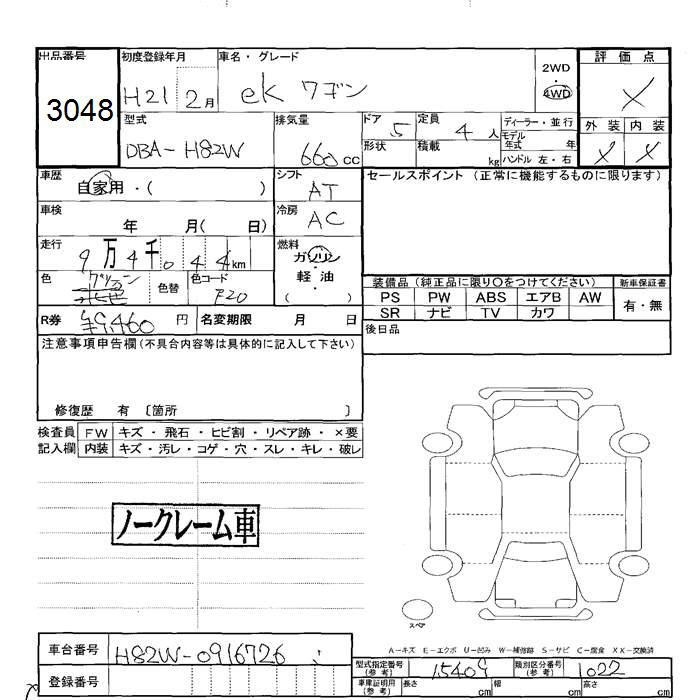 出品番号 初度登録年月 車名・グレード 評価点
3048 H21 2月 ek ワゴン 2WD 4WD X
型式 排気量 ドア 5 定員 4 人 ディーラー・並行 外装 内装
DBA-H82W 660cc 形状 積載 kg モデル年式 年 X X
ハンドル 左・右
車歴 自家用・( ) シフト AT セールスポイント(正常に機能するものに限ります)
車検 年 月( 日) 冷房 AC
走行 9万4千044km 燃料 ガソリン
軽・油
( )
色 色替 色コード F20
装備品(純正品に限り○をつけてください) 新車保証書
PS PW ABS エアB AW 有・無
SR ナビ TV カワ
R券 ¥9,460 円 名変期限 月 日 後日品
注意事項申告欄(不具合内容等は具体的に記入して下さい)
修復歴 有 〔箇所 〕
検査員 FW キズ・飛石・ヒビ割・リペア跡・×要
記入欄 内装 キズ・汚レ・コゲ・穴・スレ・キレ・破レ
ノークレーム車
スペア
A-キズ E-エクボ U-凹み W-補修跡 S-サビ C-腐食 XX-交換済
車台番号 H82W-0916726
型式指定番号(参考) 15409 類別区分番号(参考) 1022
登録番号 車庫証明用(参考) 長さ cm 幅 cm 高さ cm